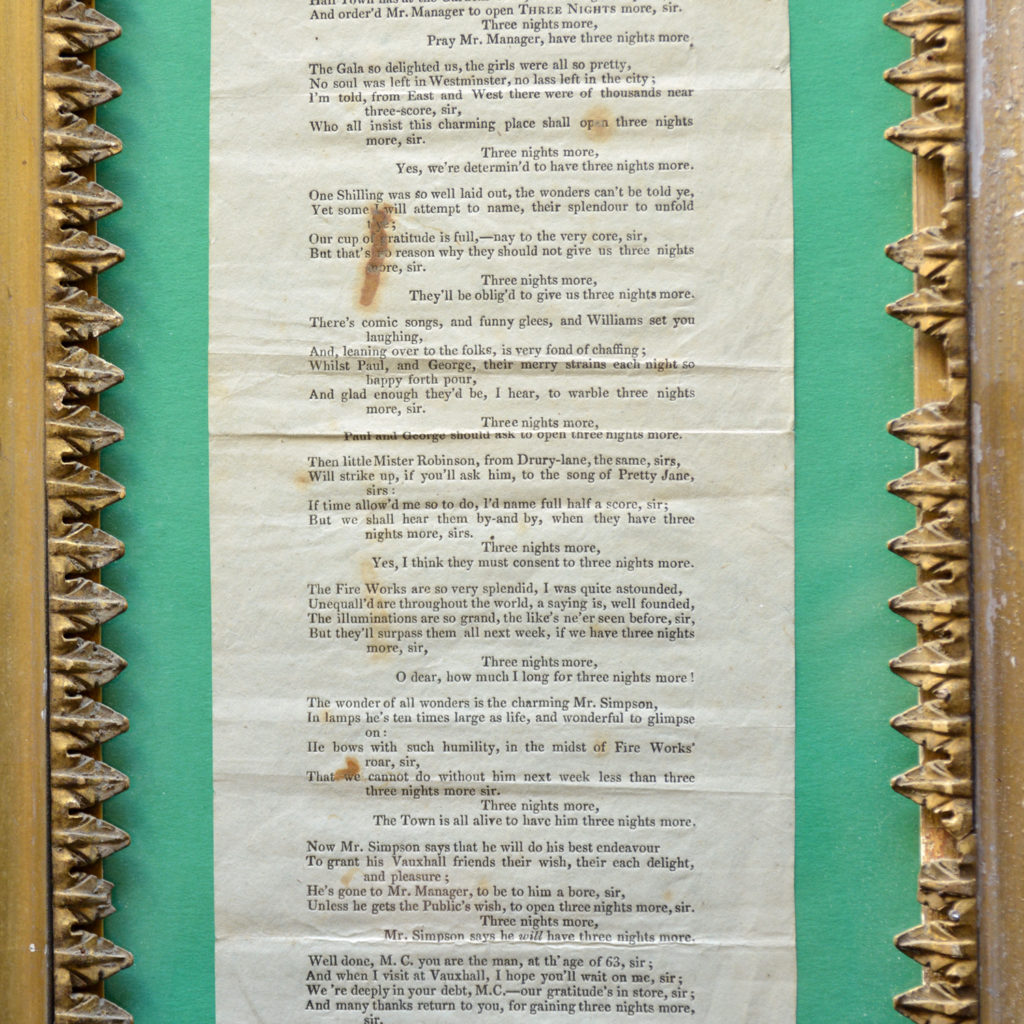 And order'd Mr. Manager to open THREE NIGHTS more, sir.
Three nights more,
Pray Mr. Manager, have three nights more
The Gala so delighted us, the girls were all so pretty,
No soul was left in Westminster, no lass left in the city;
I'm told, from East and West there were of thousands near
three-score, sir,
Who all insist this charming place shall open three nights
more, sir.
Three nights more,
Yes, we're determin'd to have three nights more.
One Shilling was so well laid out, the wonders can't be told ye,
Yet some I will attempt to name, their splendour to unfold
t'ye;
Our cup of gratitude is full,—nay to the very core, sir,
But that's no reason why they should not give us three nights
more, sir.
Three nights more,
They'll be oblig'd to give us three nights more.
There's comic songs, and funny glees, and Williams set you
laughing,
And, leaning over to the folks, is very fond of chaffing;
Whilst Paul, and George, their merry strains each night so
happy forth pour,
And glad enough they'd be, I hear, to warble three nights
more, sir.
Three nights more,
Paul and George should ask to open three nights more.
Then little Mister Robinson, from Drury-lane, the same, sirs,
Will strike up, if you'll ask him, to the song of Pretty Jane,
sirs:
If time allow'd me so to do, I'd name full half a score, sir;
But we shall hear them by-and by, when they have three
nights more, sirs.
Three nights more,
Yes, I think they must consent to three nights more.
The Fire Works are so very splendid, I was quite astounded,
Unequall'd are throughout the world, a saying is, well founded,
The illuminations are so grand, the like's ne'er seen before, sir,
But they'll surpass them all next week, if we have three nights
more, sir,
Three nights more,
O dear, how much I long for three nights more!
The wonder of all wonders is the charming Mr. Simpson,
In lamps he's ten times large as life, and wonderful to glimpse
on:
He bows with such humility, in the midst of Fire Works'
roar, sir,
That we cannot do without him next week less than three
three nights more sir.
Three nights more,
The Town is all alive to have him three nights more.
Now Mr. Simpson says that he will do his best endeavour
To grant his Vauxhall friends their wish, their each delight,
and pleasure;
He's gone to Mr. Manager, to be to him a bore, sir,
Unless he gets the Public's wish, to open three nights more, sir.
Three nights more,
Mr. Simpson says he will have three nights more.
Well done, M. C. you are the man, at th' age of 63, sir;
And when I visit at Vauxhall, I hope you'll wait on me, sir;
We 're deeply in your debt, M.C.—our gratitude's in store, sir;
And many thanks return to you, for gaining three nights more,
sir.